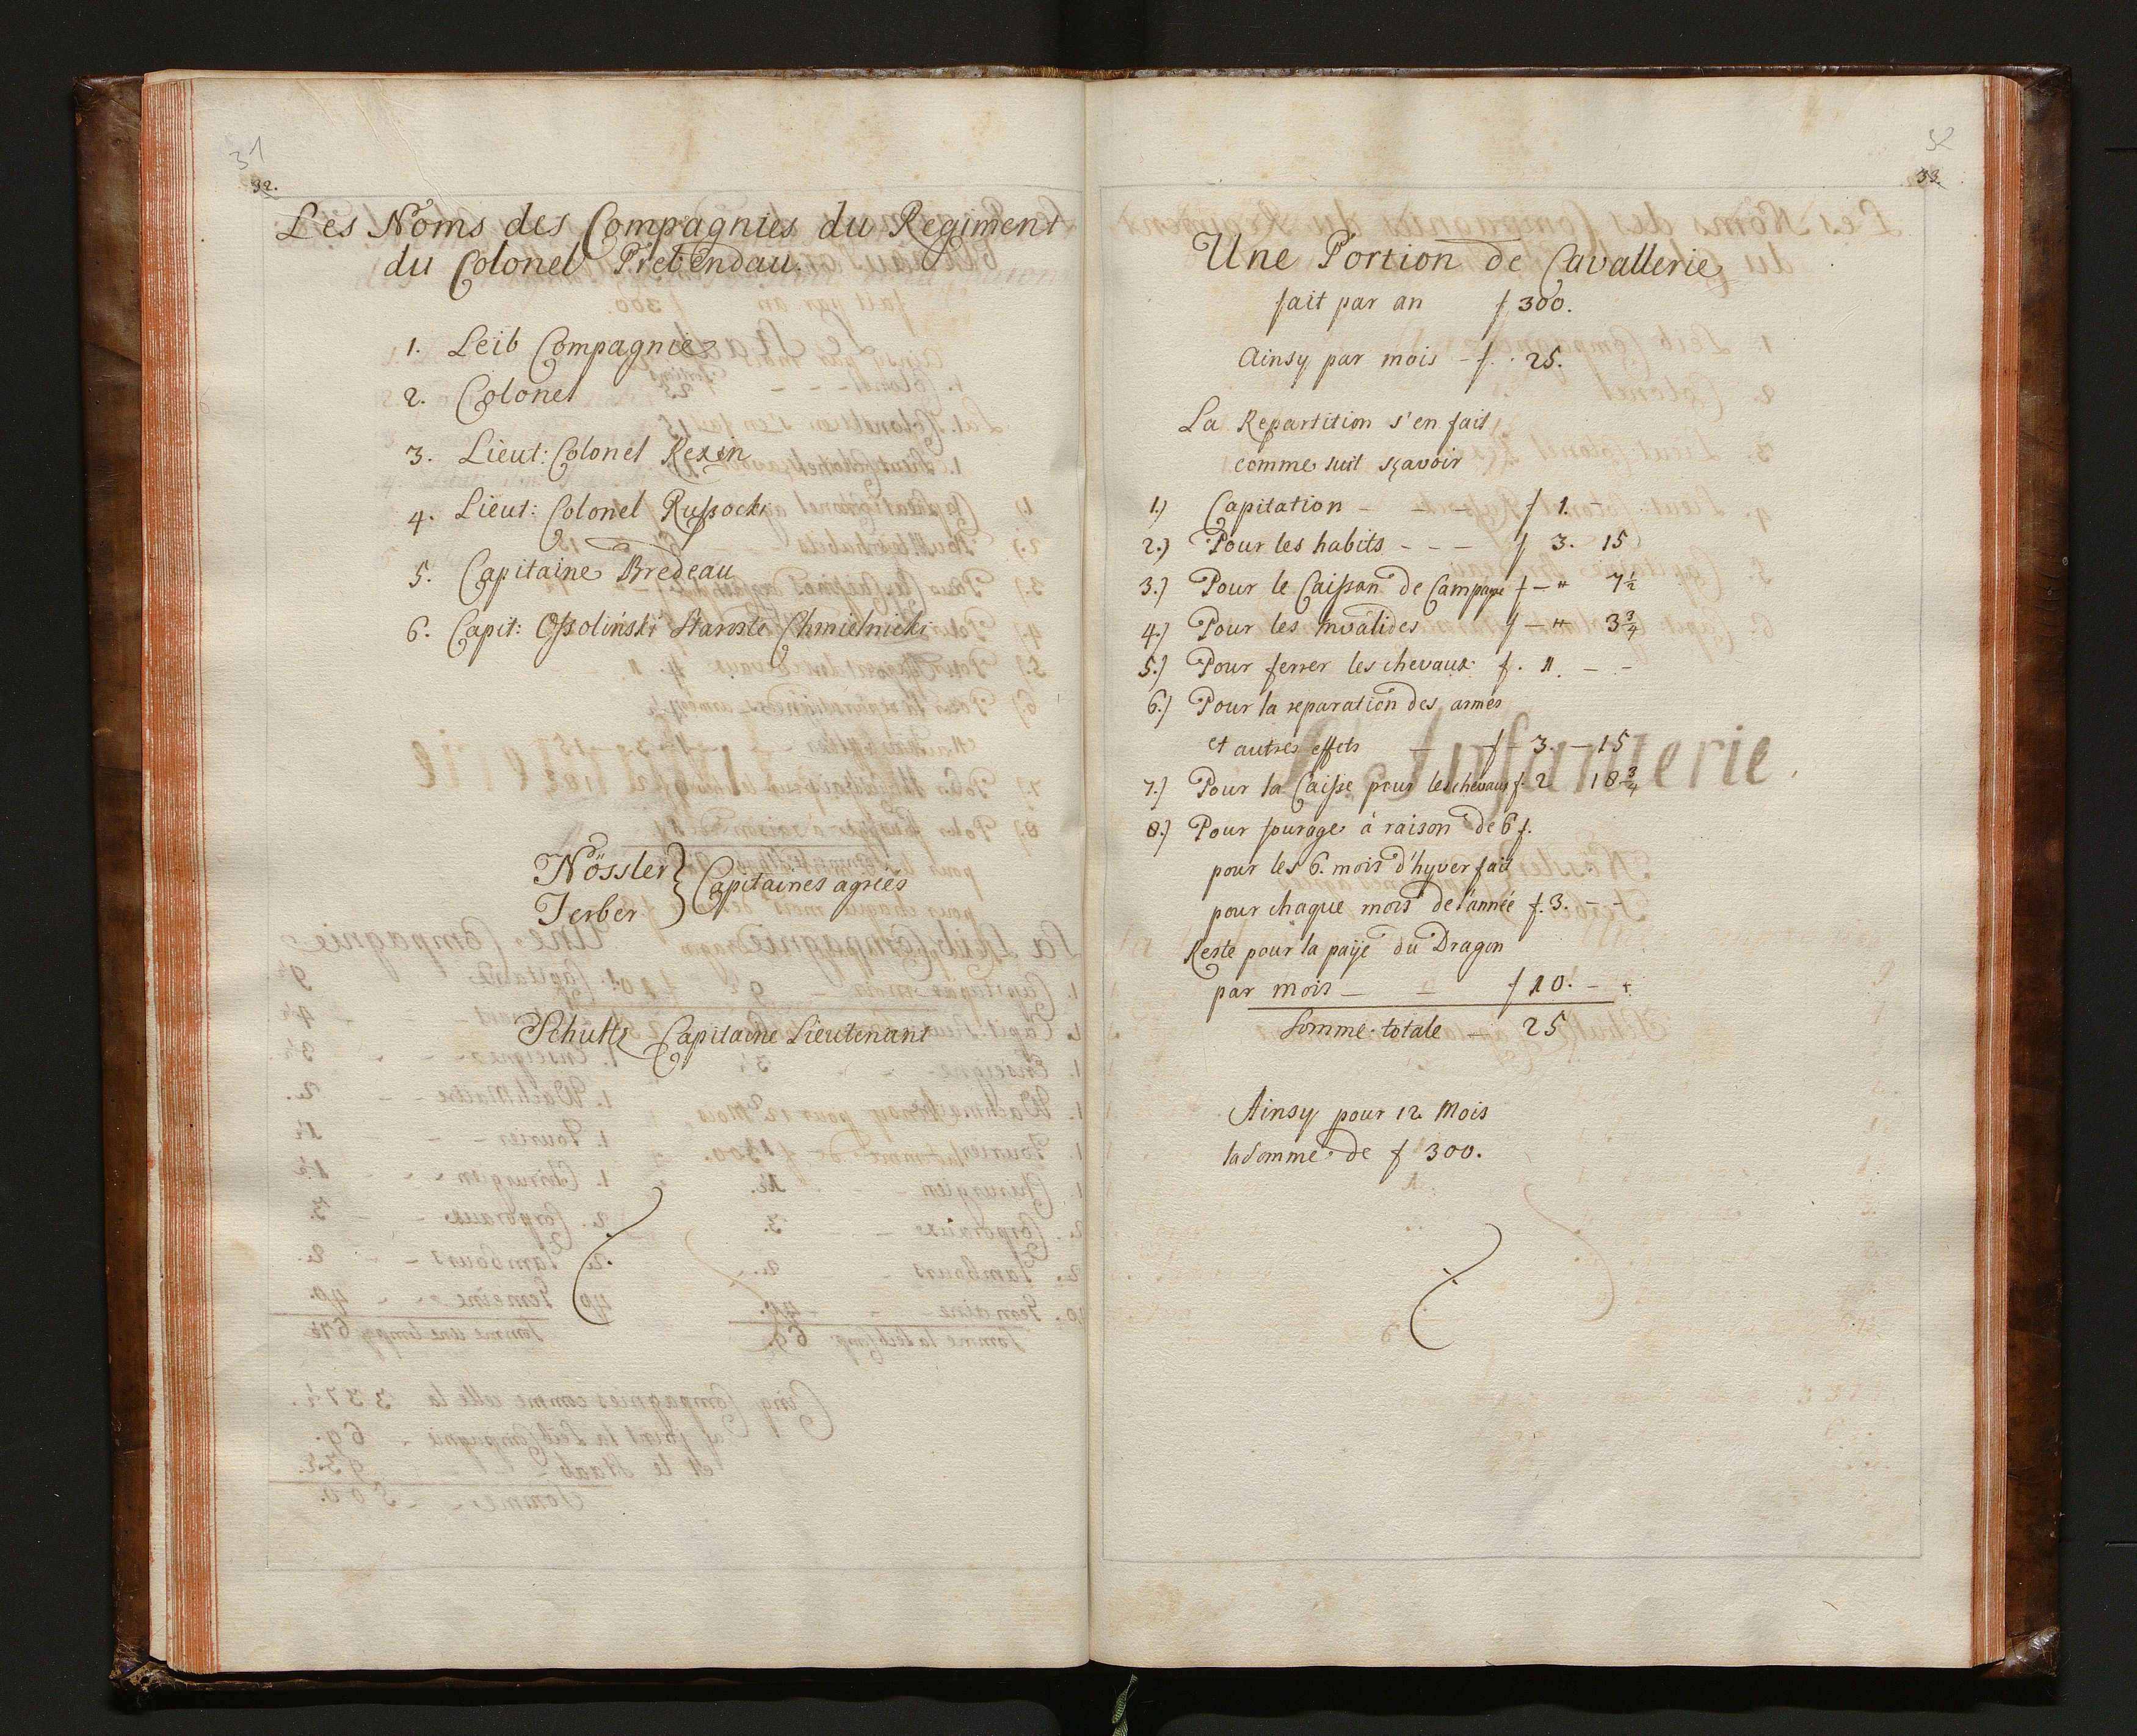 31
32.
Les Noms des Compagnies du Regiment
du Colonel Prebendau.
1. Leib Compagnie
2. Colonel
3. Lieut: Colonel Rexin
4. Lieut: Colonel Russocki
5. Capitaine Bredeau
6. Capit: Ossoliński Staroste Chmielnicki
Nössler
Ferber } Capitaines agrées
Schultz Capitaine Lieutenant
32
33.
Une Portion de Cavallerie
fait par an f 300.
Ainsy par mois - f. 25.
La Repartition s'en fait
comme suit sçavoir
1.) Capitation - - - f 1.
2.) Pour les habits - - - f 3. 15
3.) Pour le Caisson de Campagne f - " 7½
4.) Pour les Invalides f - " 3¾
5.) Pour ferrer les chevaux f. 1. - -
6.) Pour la reparation des armes
et autres effets - f 3. - 15
7.) Pour la Caisse pour les chevaux f. 2 18¾
8.) Pour fourage à raison de 6 f.
pour les 6. mois d'hyver fait
pour chaque mois de l'année f. 3. - -
Reste pour la paÿe du Dragon
par mois - - f 10. - -
Somme totale - 25
Ainsy pour 12 Mois
la Somme de f 300.
Infanterie.